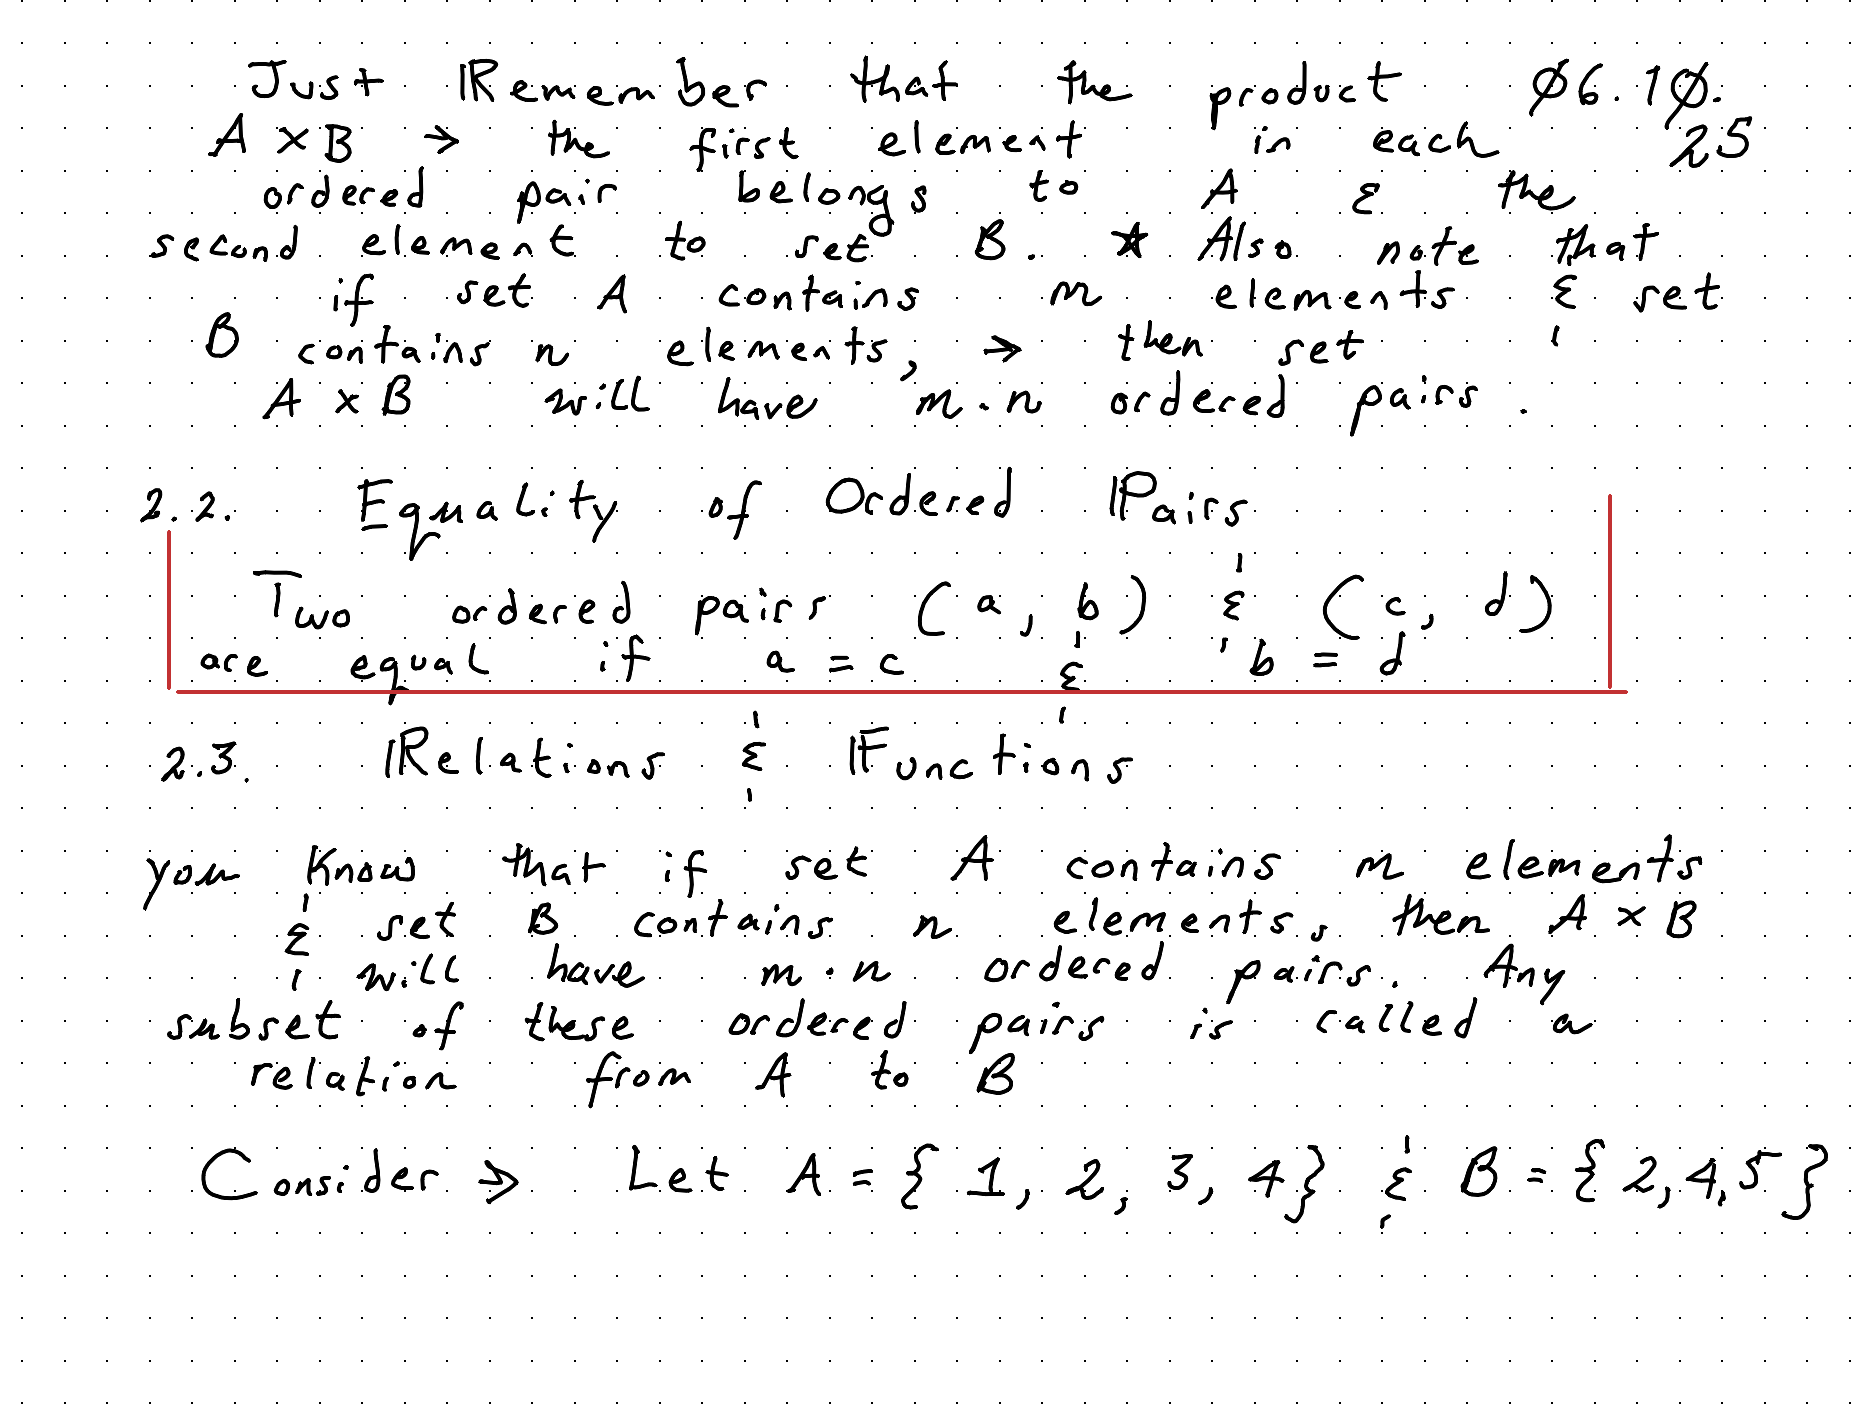 Just Remember that the product Ø6.1Ø.
A × B → the first element in each 25
ordered pair belongs to A & the
second element to set B. ★ Also note that
if set A contains m elements & set
B contains n elements, → then set
A × B will have m·n ordered pairs.
2.2. Equality of Ordered Pairs
Two ordered pairs (a, b) & (c, d)
are equal if a = c & b = d
2.3. Relations & Functions
you know that if set A contains m elements
& set B contains n elements, then A × B
will have m·n ordered pairs. Any
subset of these ordered pairs is called a
relation from A to B
Consider → Let A = { 1, 2, 3, 4} & B = { 2,4,5 }